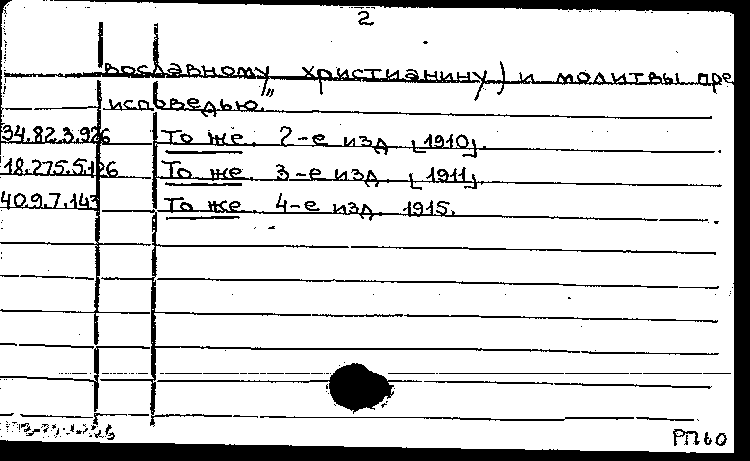 2
вославному христианину) и молитвы пре
исповедью."
34.82.3.926 То же. 2-е изд [1910].
18.275.5.126 То же. 3-е изд. [1911].
40.9.7.143 То же. 4-е изд. 1915.
РП60